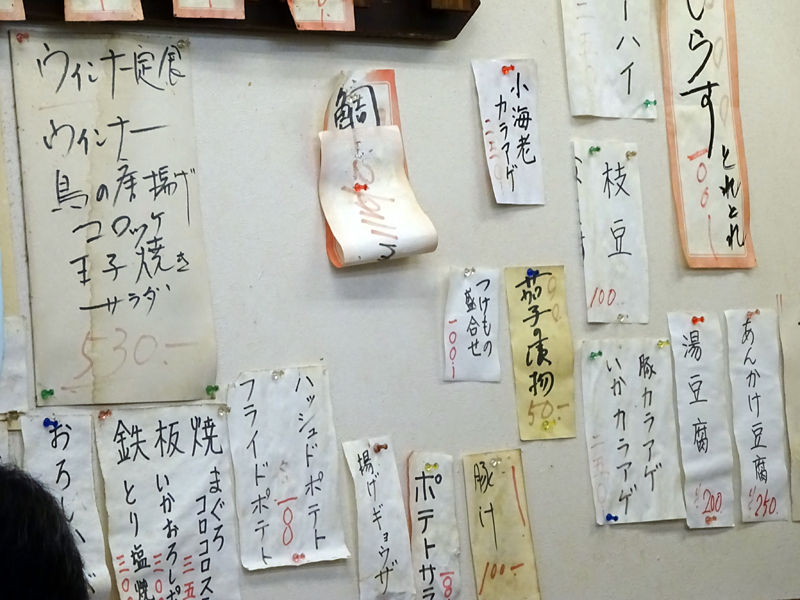 ウインナー定食
ウインナー
鳥の唐揚げ
コロッケ
玉子焼き
サラダ
530.-
鯛
小海老
カラアゲ
ーハイ
しらす とれとれ
一〇〇.
枝豆
100.
つけもの
盛合せ
一〇〇.
茄子の漬物
50.-
豚カラアゲ
いかカラアゲ
二五〇
湯豆腐
200.
あんかけ豆腐
250.
おろし
鉄板焼
まぐろ
コロコロス
三五
いかおろしポ
三〇
とり塩焼
三〇
ハッシュドポテト
フライドポテト
一八
揚げギョウザ
ポテトサラ
一8
豚汁
100.-